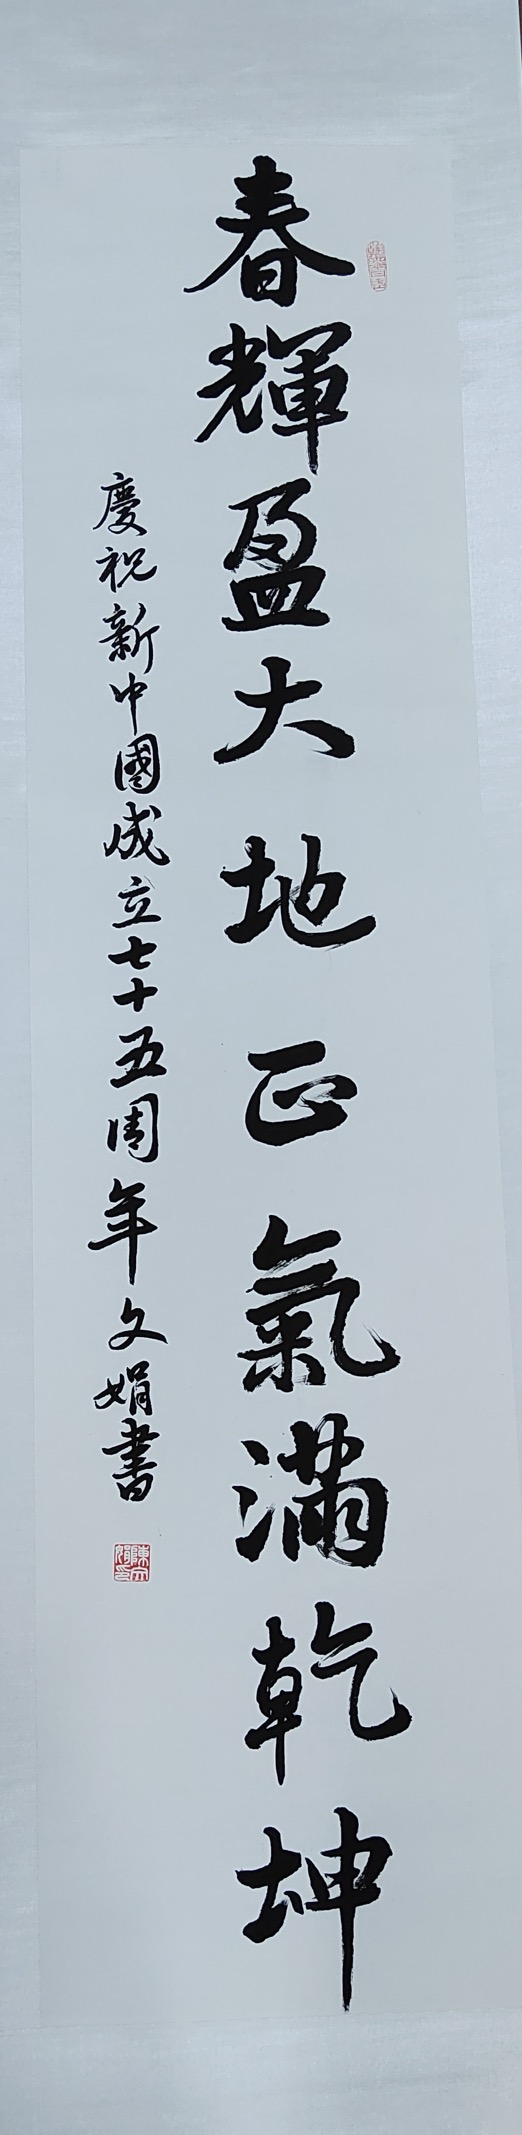 春輝盈大地正氣滿乾坤
慶祝新中國成立七十五周年文娟書
陳文娟印